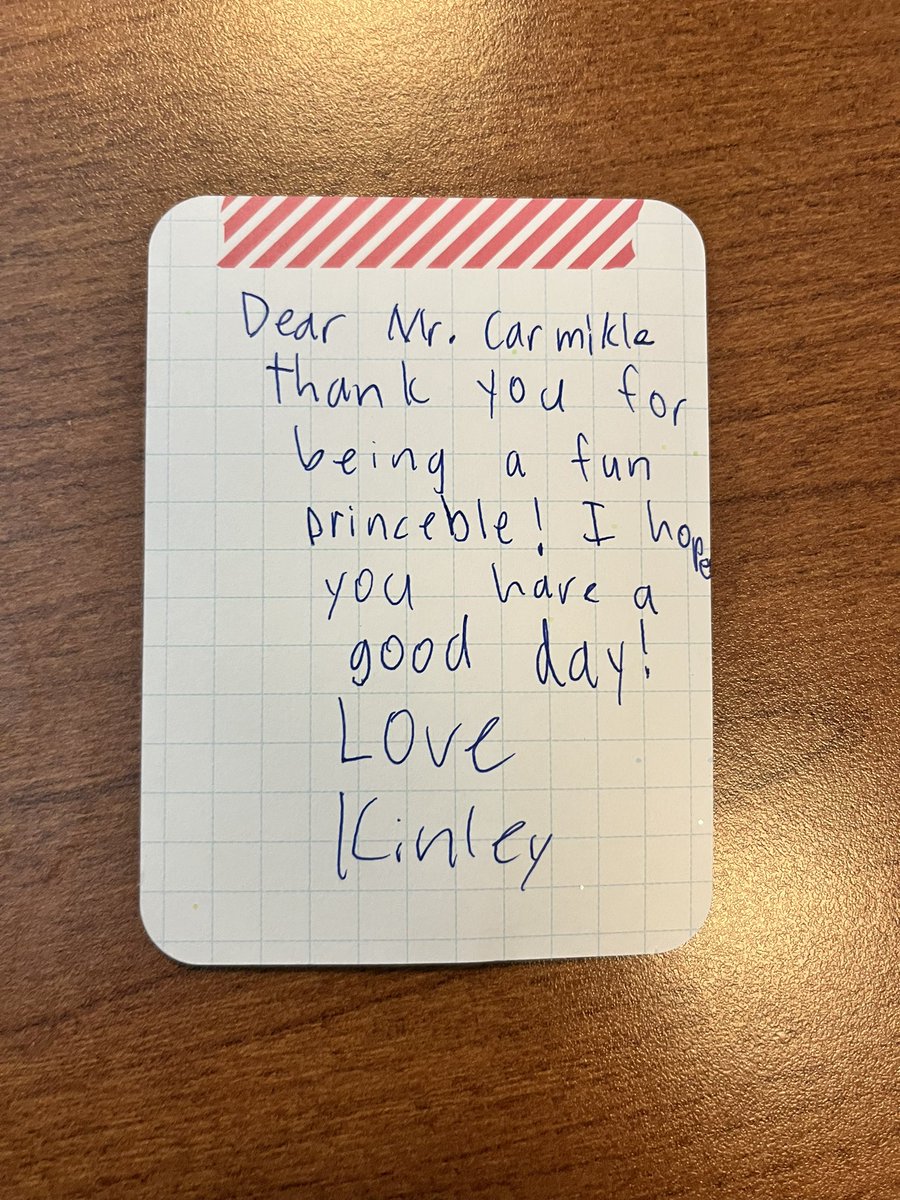 Dear Mr. Carmikle
thank you for
being a fun
princeble! I hope
you have a
good day!
Love
Kinley